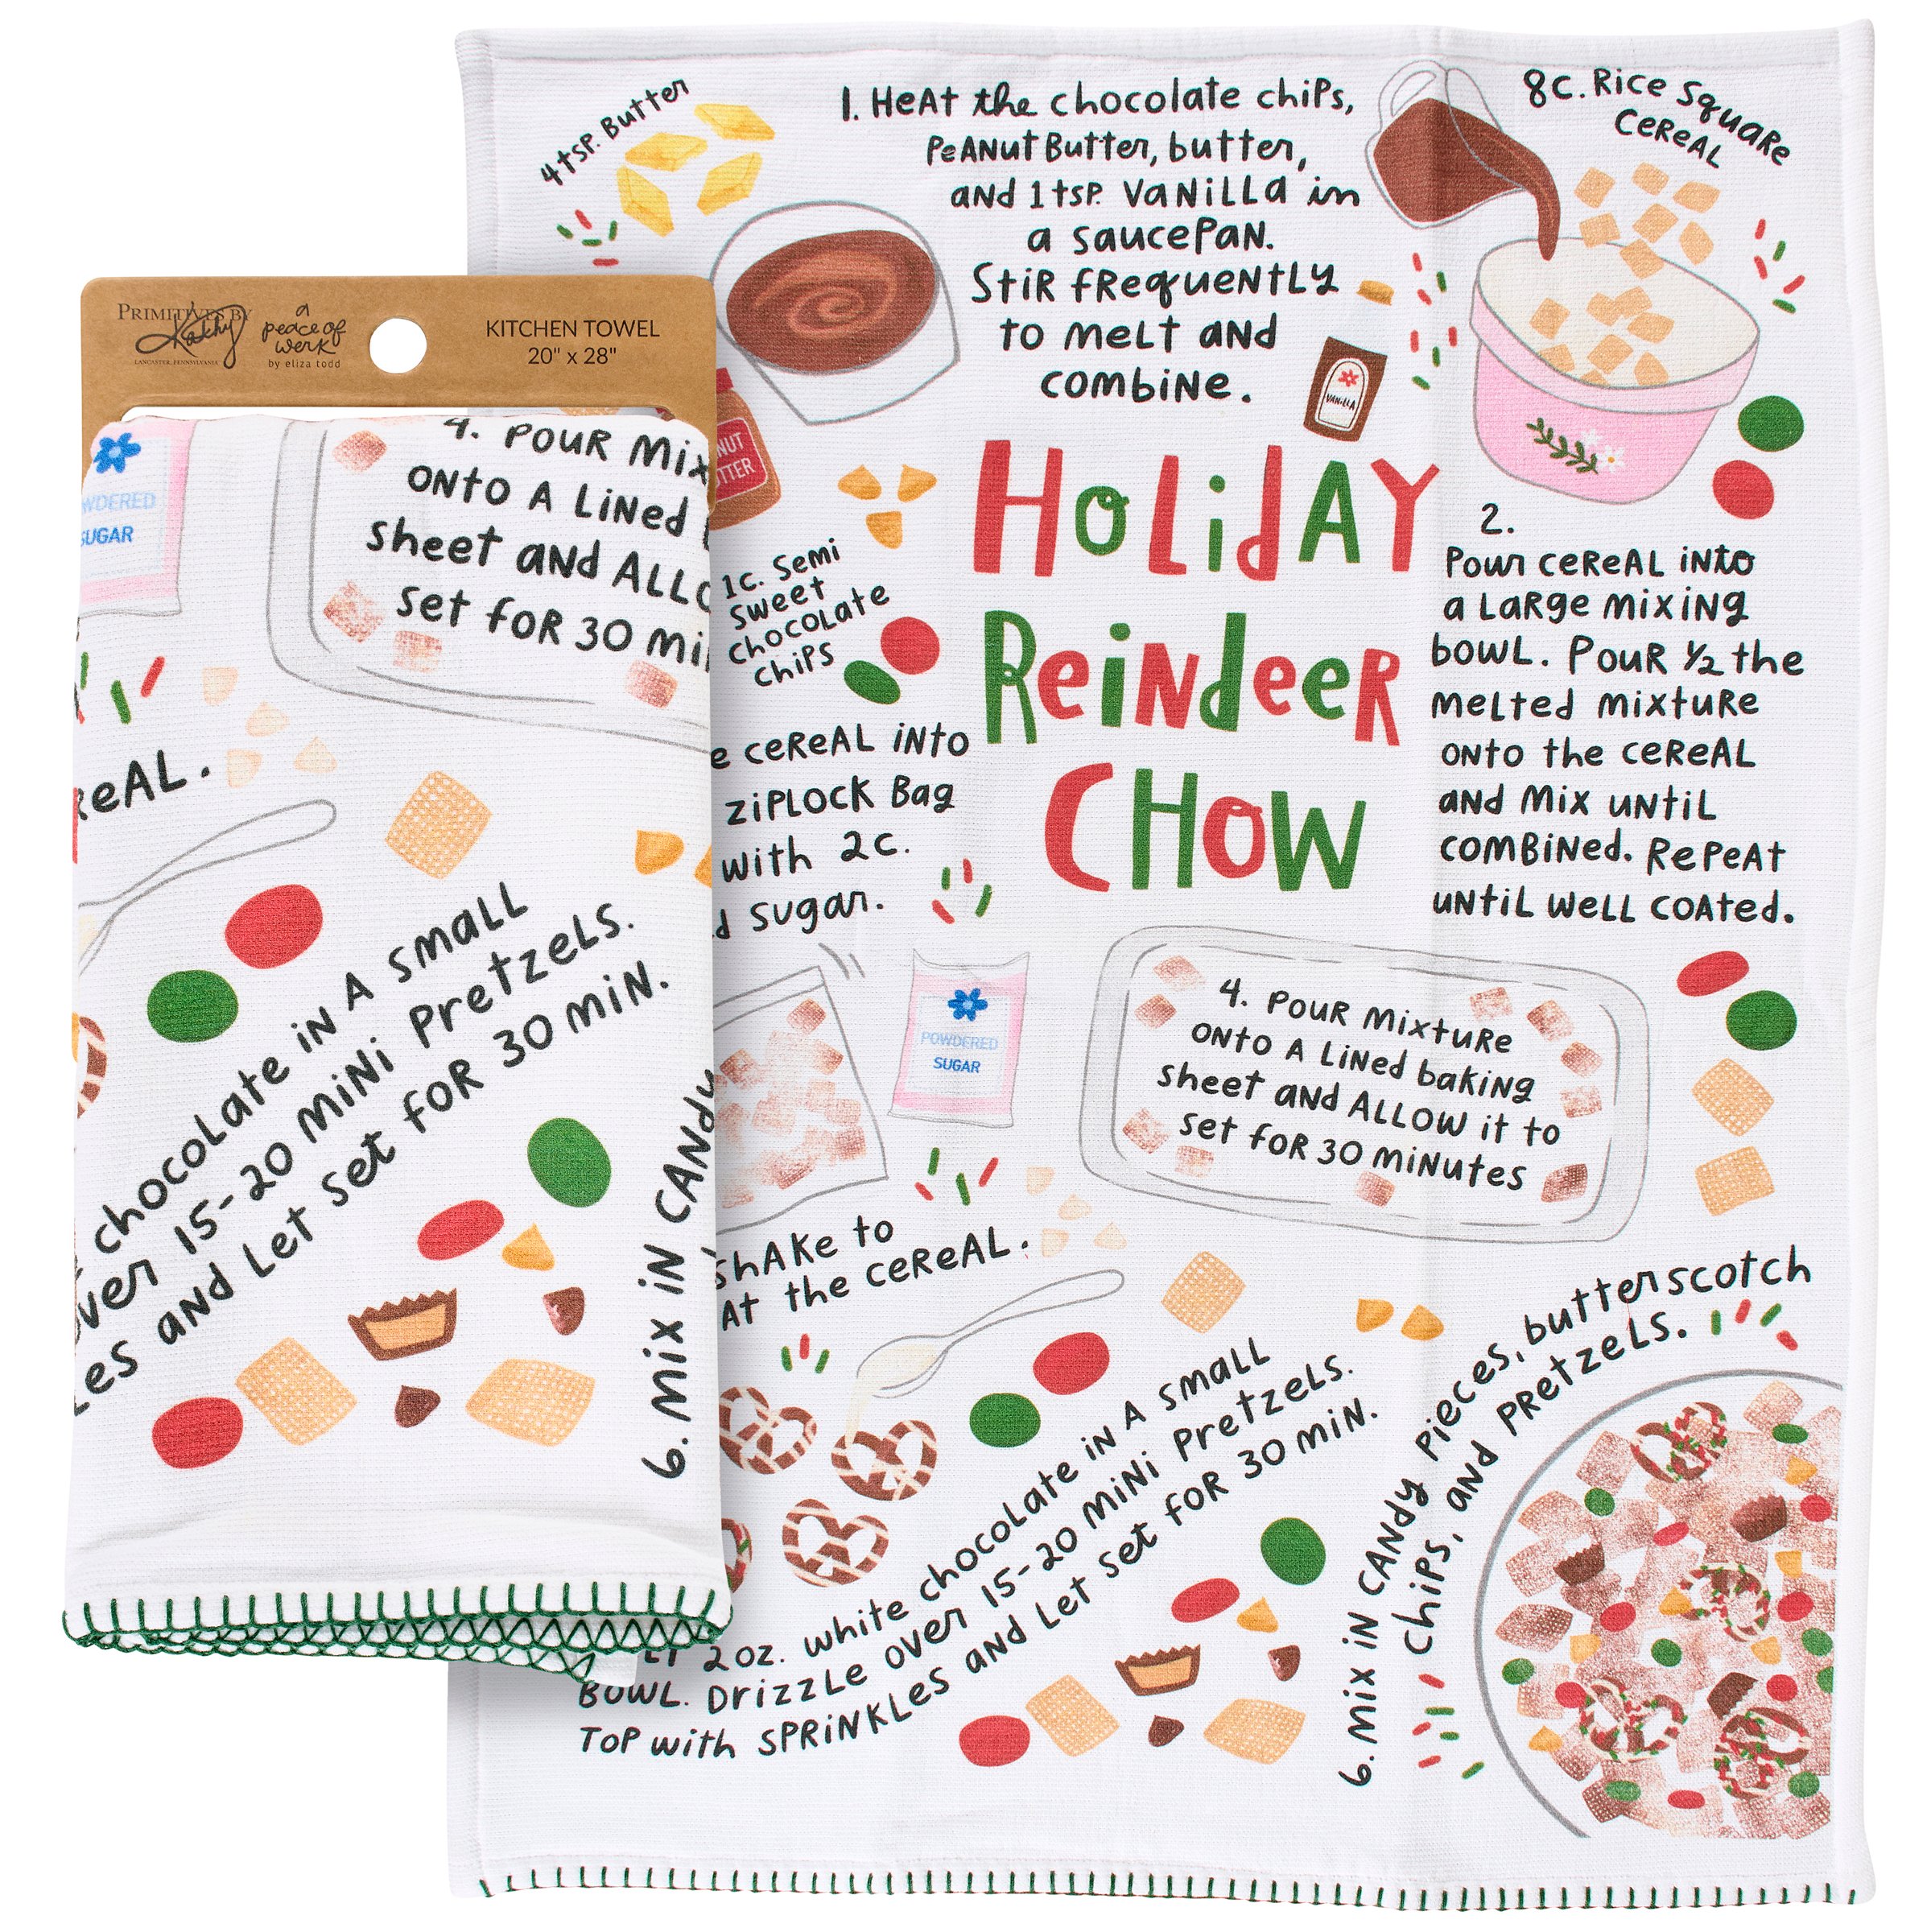 4 tsp. Butter
1. Heat the chocolate chips,
Peanut Butter, butter,
and 1 tsp. vanilla in
a saucepan.
Stir frequently
to melt and
combine.
8c. Rice Square
Cereal
VANILLA
PRIMITIVES BY
Kathy
LANCASTER, PENNSYLVANIA
a
peace of
werk
by eliza todd
KITCHEN TOWEL
20" x 28"
Holiday
Reindeer
Chow
1c. Semi
Sweet
chocolate
chips
2.
Pour cereal into
a large mixing
bowl. Pour ½ the
melted mixture
onto the cereal
and mix until
combined. Repeat
until well coated.
cereal into
ziplock Bag
with 2c.
sugar.
POWDERED
SUGAR
4. Pour mixture
onto a lined baking
sheet and allow it to
set for 30 minutes
shake to
the cereal.
2 oz. white chocolate in a small
Bowl. Drizzle over 15-20 mini pretzels.
Top with sprinkles and let set for 30 min.
6. Mix in candy pieces, butterscotch
chips, and pretzels.
SUGAR
4. Pour
onto a lined
sheet and
set for 30
chocolate in a small
15-20 mini pretzels.
and let set for 30 min.
6. Mix in candy